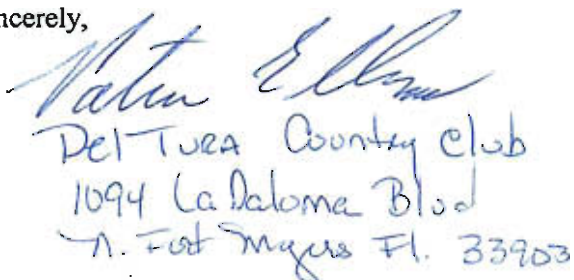 ncerely,
Del Tura Country Club
1094 La Paloma Blvd
N. Fort Myers Fl. 33903